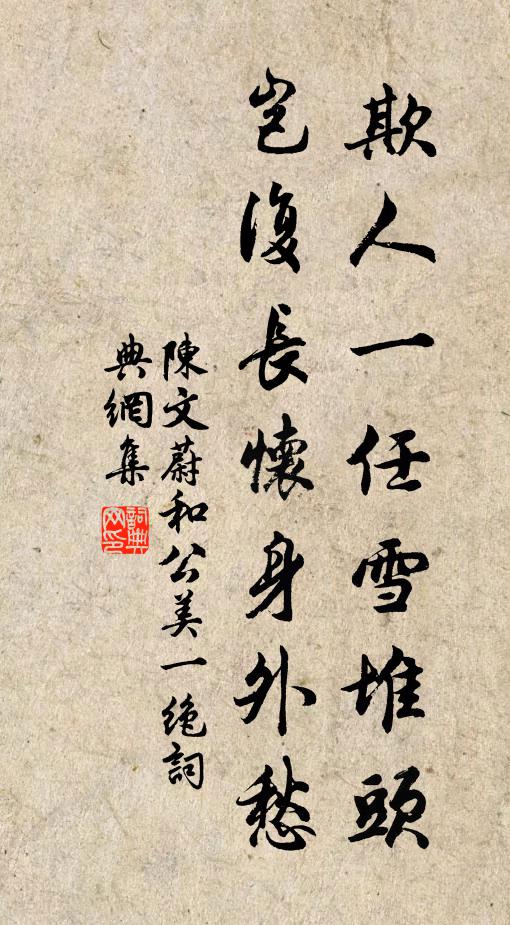 欺人一任雪堆頭
豈復長懷身外愁
陳文蔚和公美一絶詞
典網集
詞典網印